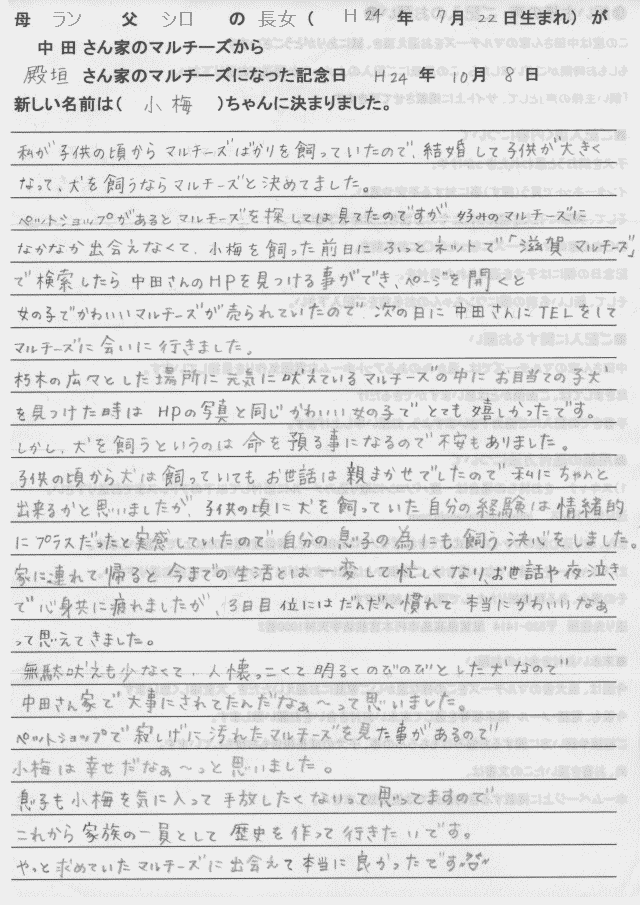 母 ラン 父 シロ の 長女 ( H 24 年 7月 22 日生まれ) が
中 田 さん家のマルチーズから
殿垣 さん家のマルチーズになった記念日 H24 年 10月 8 日
新しい名前は( 小梅 )ちゃんに決まりました。
私が子供の頃からマルチーズばかりを飼っていたので、結婚して子供が大きく
なって、犬を飼うならマルチーズと決めてました。
ペットショップがあるとマルチーズを探しては見てたのですが 好みのマルチーズに
なかなか出会えなくて、小梅を飼った前日にふっとネットで「滋賀 マルチーズ」
で検索したら 中田さんのHPを見つける事ができ、ページを開くと
女の子でかわいいマルチーズが売られていたので 次の日に中田さんにTELをして
マルチーズに会いに行きました。
朽木の広々とした場所に元気に吠えているマルチーズの中にお目当ての子犬
を見つけた時は HPの写真と同じかわいい女の子で とても嬉しかったです。
しかし、犬を飼うというのは 命を預る事になるので不安もありました。
子供の頃から犬は飼っていてもお世話は親まかせでしたので 私にちゃんと
出来るかと思いましたが、子供の頃に犬を飼っていた自分の経験は情緒的
にプラスだったと実感していたので自分の息子の為にも飼う決心をしました。
家に連れて帰ると今までの生活とは一変して忙しくなり、お世話や夜泣き
で心身共に疲れましたが、3日目位にはだんだん慣れて 本当にかわいいなぁ
って思えてきました。
無駄吠えも少なくて、人懐っこくて明るくのびのびとした犬なので
中田さん家で大事にされてたんだなぁ〜って思いました。
ペットショップで寂しげに汚れたマルチーズを見た事があるので
小梅は幸せだなぁ〜っと思いました。
息子も小梅を気に入って手放したくないって思ってますので
これから家族の一員として 歴史を作って行きたいです。
やっと求めていたマルチーズに出会えて本当に良かったです